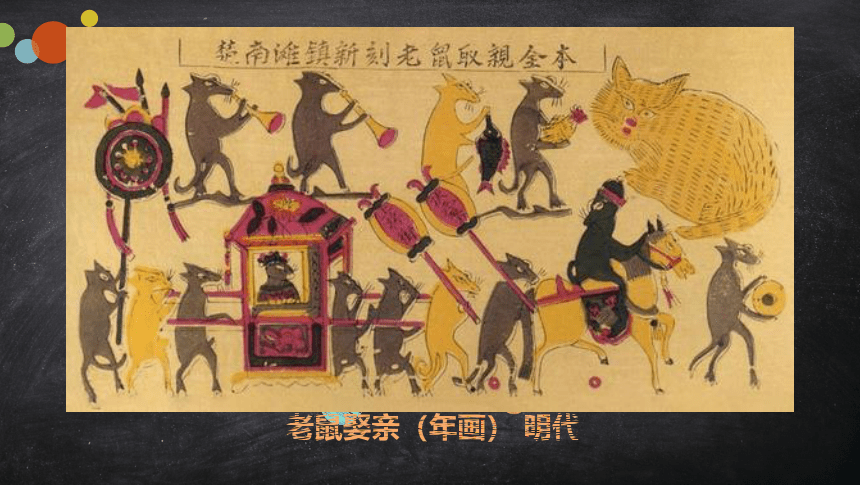 楚南滩鎮新刻老鼠取親全本
老鼠娶亲（年画） 明代